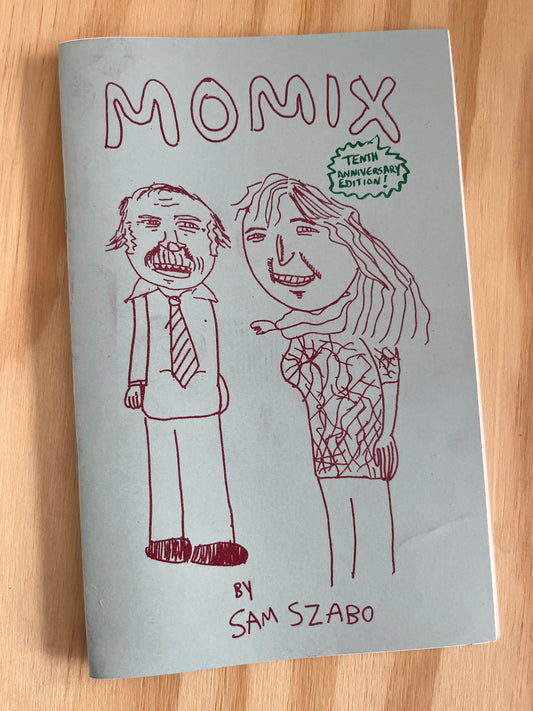 MOMIX
TENTH
ANNIVERSARY
EDITION!
BY
SAM SZABO